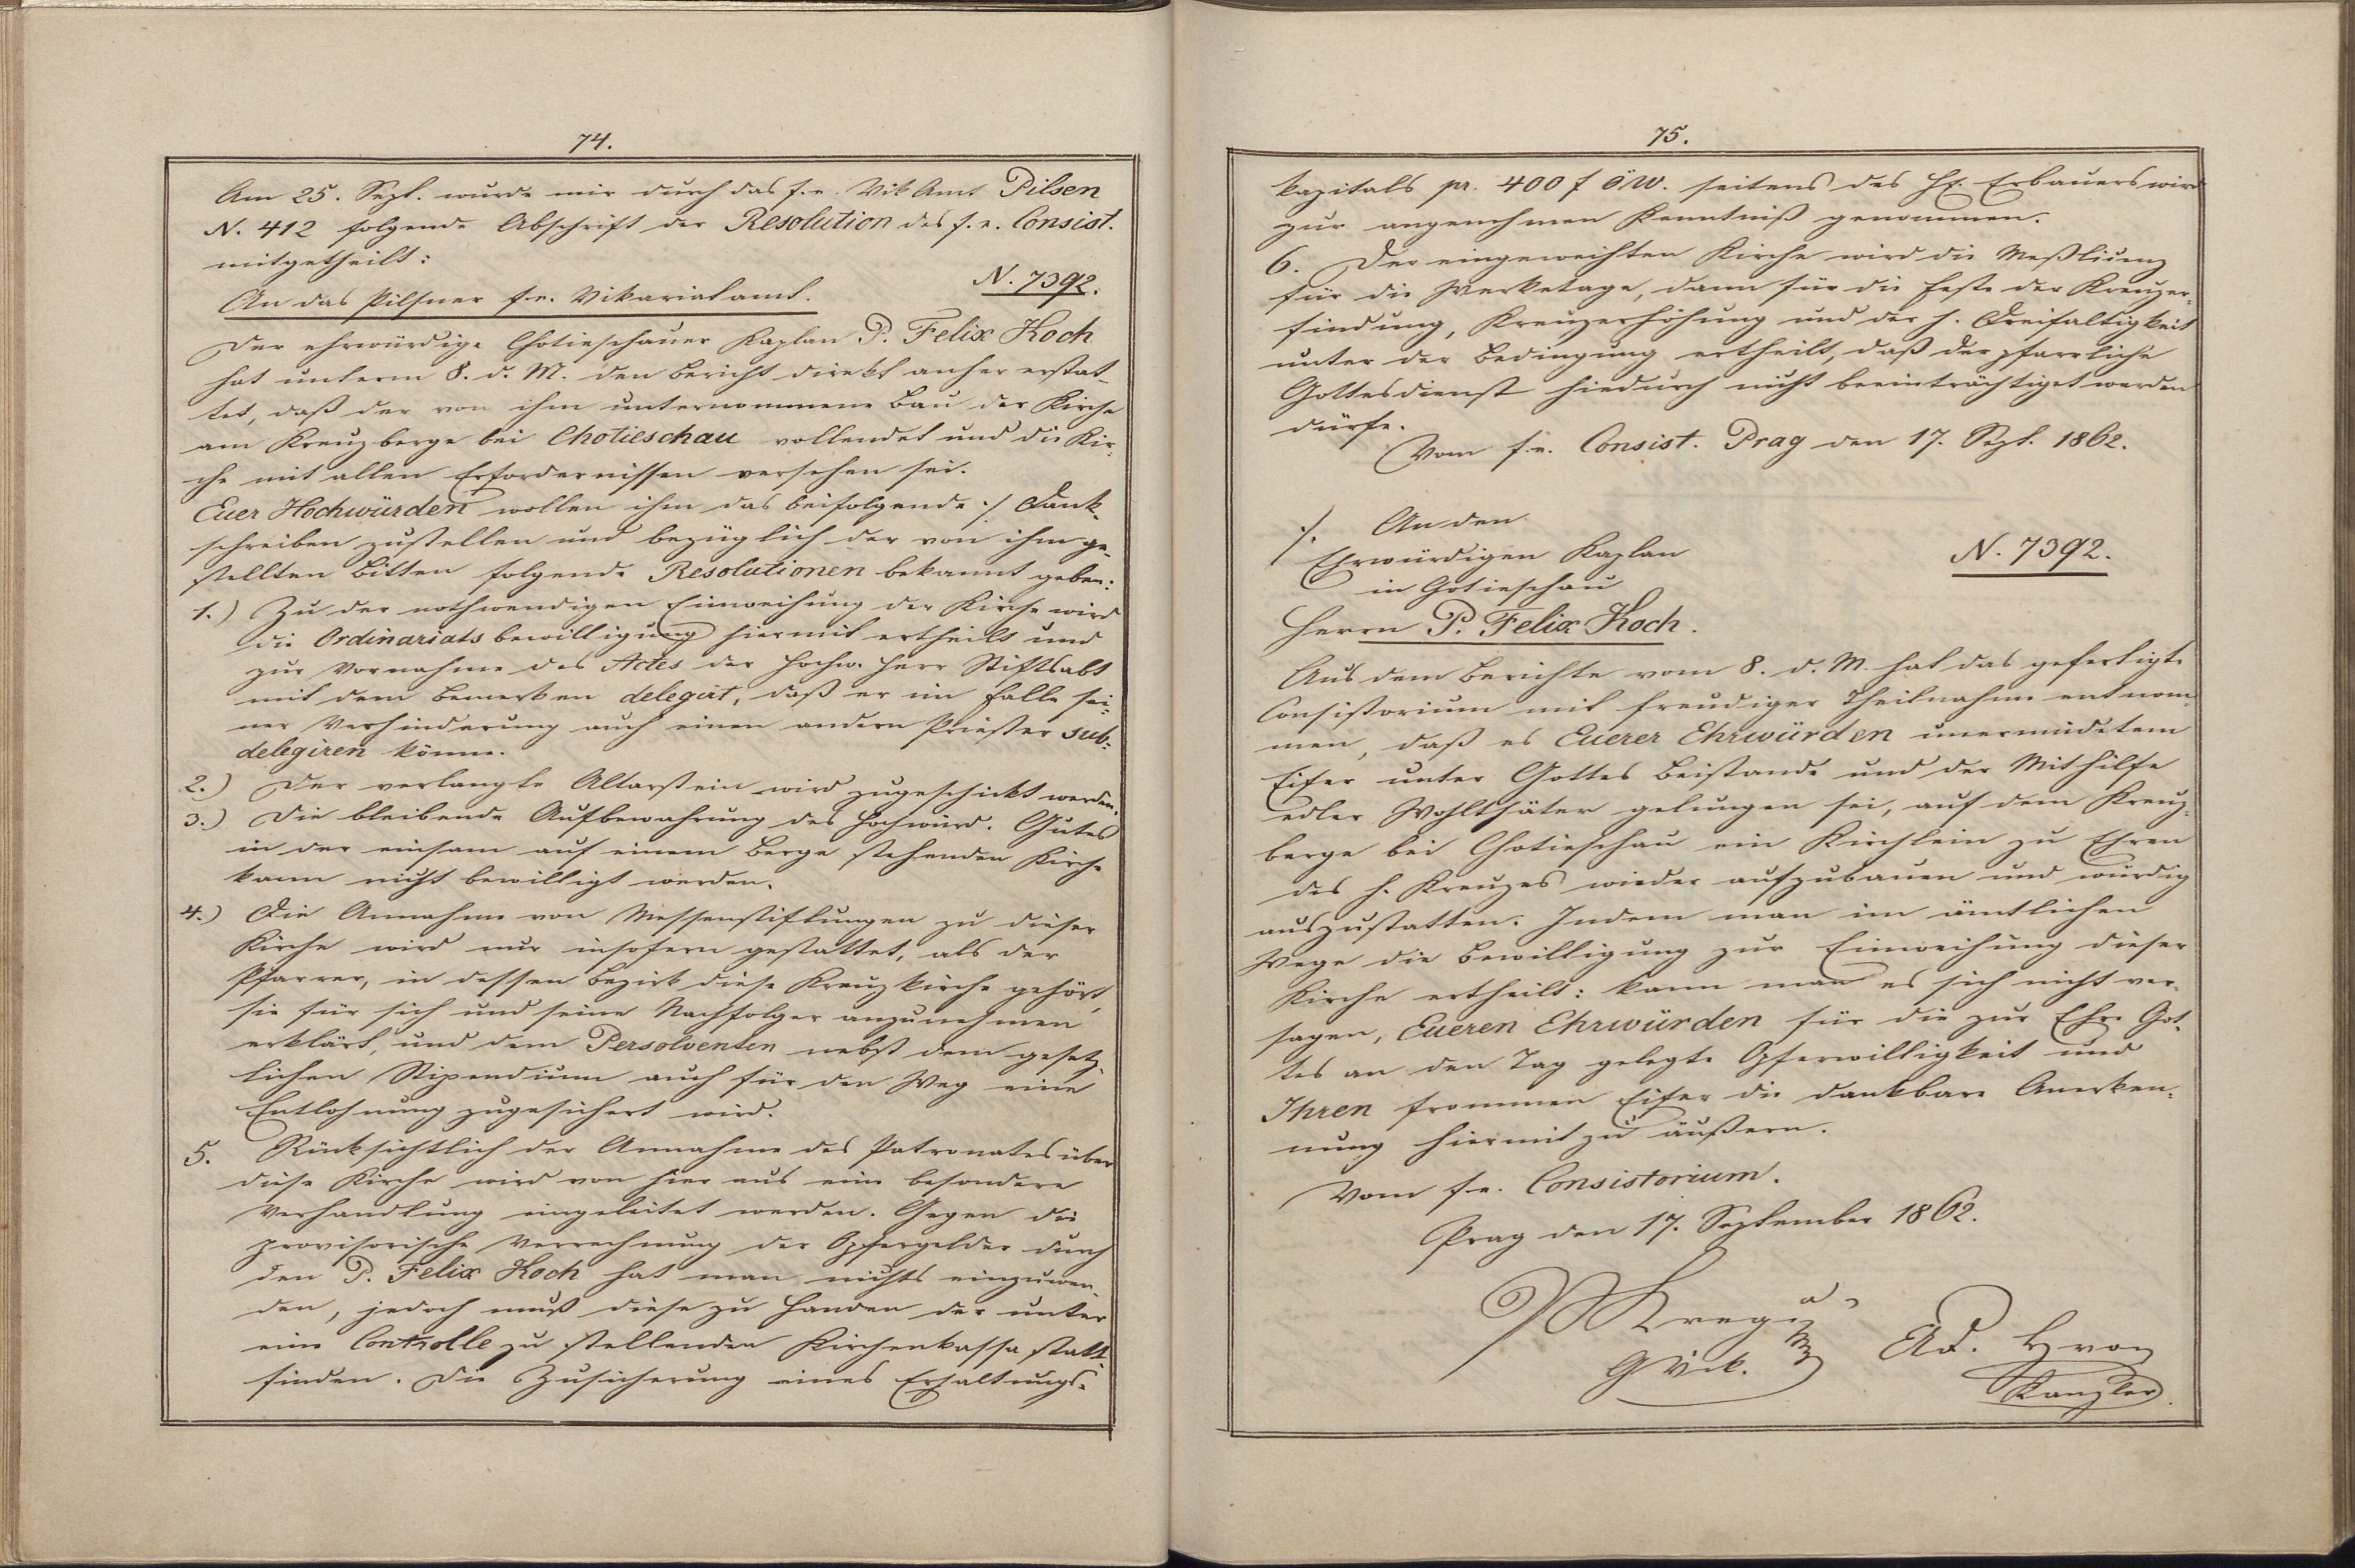 74.
Am 25. Sept. wurde mir durch das f. e. Vik Amt Pilsen
N. 412 folgende Abschrift der Resolution des f. e. Consist.
mitgetheilt:
N. 7392.
An das Pilsner f. e. Vikariatamt.
Der ehrwürdige Chotieschauer Kaplan P. Felix Koch
hat unterm 8. d. M. den Bericht direkt anher erstat-
tet, daß der von ihm unternommene Bau der Kirche
am Kreuzberge bei Chotieschau vollendet und die Kir-
che mit allen Erfordernissen versehen sei.
Euer Hochwürden wollen ihm das beifolgende ./ Dank-
schreiben zustellen und bezüglich der von ihm ge-
stellten Bitten folgende Resolutionen bekannt geben:
1.) Zu der nothwendigen Einweihung der Kirche wird
die Ordinariatsbewilligung hiermit ertheilt und
zur Vornahme des Actes der hochw. Herr Stiftsabt
mit dem Bemerken delegirt, daß er im Falle sei-
ner Verhinderung auch einen andern Priester sub-
delegiren könne.
2.) Der verlangte Altarstein wird zugeschickt werden.
3.) Die bleibende Aufbewahrung des hochwürd. Gutes
in der einsam auf einem Berge stehenden Kirche
kann nicht bewilligt werden.
4.) Die Annahme von Messenstiftungen zu dieser
Kirche wird nur insofern gestattet, als der
Pfarrer, in dessen Bezirk diese Kreuzkirche gehört,
sie für sich und seine Nachfolger anzunehmen
erklärt, und dem Persolventen nebst dem gesetz-
lichen Stipendium auch für den Weg eine
Entlohnung zugesichert wird.
5. Rücksichtlich der Annahme des Patronates über
diese Kirche wird von hier aus eine besondere
Verhandlung eingeleitet werden. Gegen die
provisorische Verrechnung der Opfergelder durch
den P. Felix Koch hat man nichts einzuwen-
den, jedoch muß diese zu Handen der unter
eine Controlle zu stellenden Kirchenkassa statt-
finden. Die Zusicherung eines Erhaltungs-
75.
kapitals pr. 400 f öW. seitens des H. Erbauers wird
zur angenehmen Kenntniß genommen.
6. Der eingeweihten Kirche wird die Meßlicenz
für die Werketage, dann für die Feste der Kreuzer-
findung, Kreuzerhöhung und der h. Dreifaltigkeit
unter der Bedingung ertheilt, daß der pfarrliche
Gottesdienst hiedurch nicht beeinträchtiget werden
dürfe.
Vom f. e. Consist. Prag den 17. Sept. 1862.
./. An den
Ehrwürdigen Kaplan
N. 7392.
in Chotieschau
Herrn P. Felix Koch.
Aus dem Berichte vom 8. d. M. hat das gefertigte
Consistorium mit freudiger Theilnahme entnom-
men, daß es Euerer Ehrwürden unermüdetem
Eifer unter Gottes Beistande und der Mithilfe
edler Wohlthäter gelungen sei, auf dem Kreuz-
berge bei Chotieschau ein Kirchlein zu Ehren
des h. Kreuzes wieder aufzubauen und würdig
auszustatten. Indem man im ämtlichen
Wege die Bewilligung zur Einweihung dieser
Kirche ertheilt: kann man es sich nicht ver-
sagen, Eueren Ehrwürden für die zur Ehre Got-
tes an den Tag gelegte Opferwilligkeit und
Ihren frommen Eifer die dankbare Anerken-
nung hiermit zu äußern.
Vom f. e. Consistorium.
Prag den 17. September 1862.
Ad. Hron
GVik.
Kanzler.